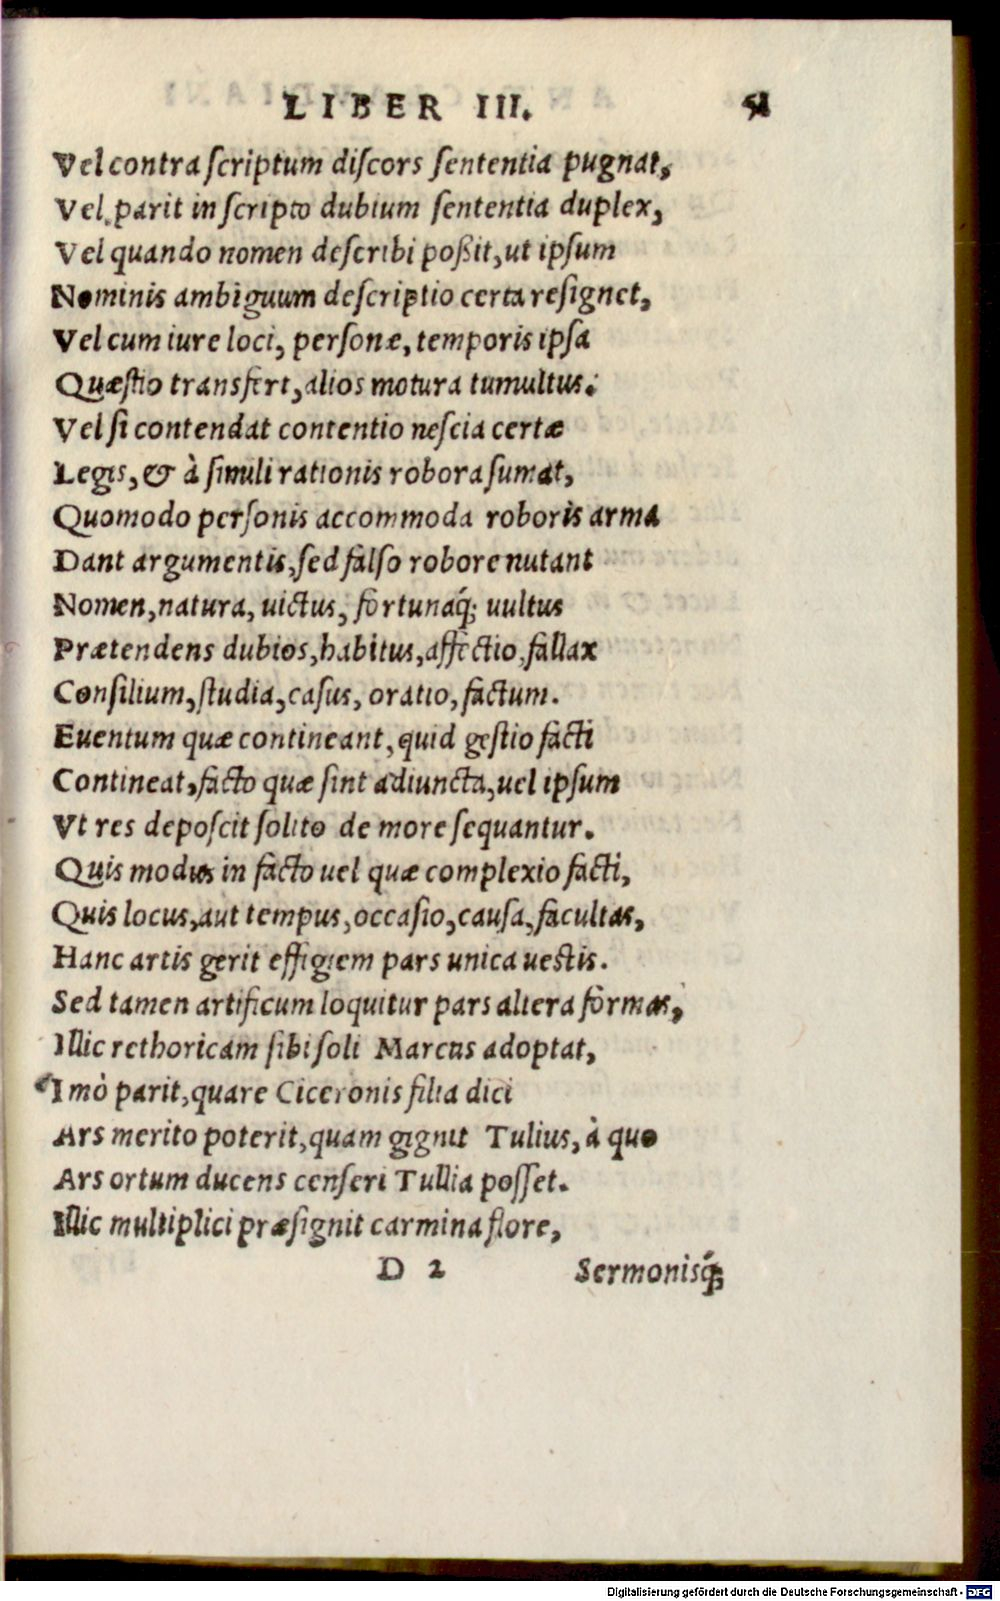 LIBER III. 51
Vel contra ſcriptum diſcors ſententia pugnat,
Vel parit in ſcripto dubium ſententia duplex,
Vel quando nomen deſcribi poßit, ut ipſum
Nominis ambiguum deſcriptio certa reſignet,
Vel cum iure loci, perſonæ, temporis ipſa
Quæſtio transfert, alios motura tumultus.
Vel ſi contendat contentio neſcia certæ
Legis, & à ſimili rationis robora ſumat,
Quomodo perſonis accommoda roboris arma
Dant argumentis, ſed falſo robore nutant
Nomen, natura, uictus, fortunaq́; uultus
Prætendens dubios, habitus, affectio, fallax
Conſilium, ſtudia, caſus, oratio, factum.
Euentum quæ contineant, quid geſtio facti
Contineat, facto quæ ſint adiuncta, uel ipſum
Vt res depoſcit ſolito de more ſequantur.
Quis modus in facto uel quæ complexio facti,
Quis locus, aut tempus, occaſio, cauſa, facultas,
Hanc artis gerit effigiem pars unica ueſtis.
Sed tamen artificum loquitur pars altera formas,
Illic rethoricam ſibi ſoli Marcus adoptat,
Imò parit, quare Ciceronis filia dici
Ars merito poterit, quam gignit Tulius, à quo
Ars ortum ducens cenſeri Tullia poſſet.
Illic multiplici præſignit carmina flore,
D 2 Sermonisq́;
Digitalisierung gefördert durch die Deutsche Forschungsgemeinschaft - DFG